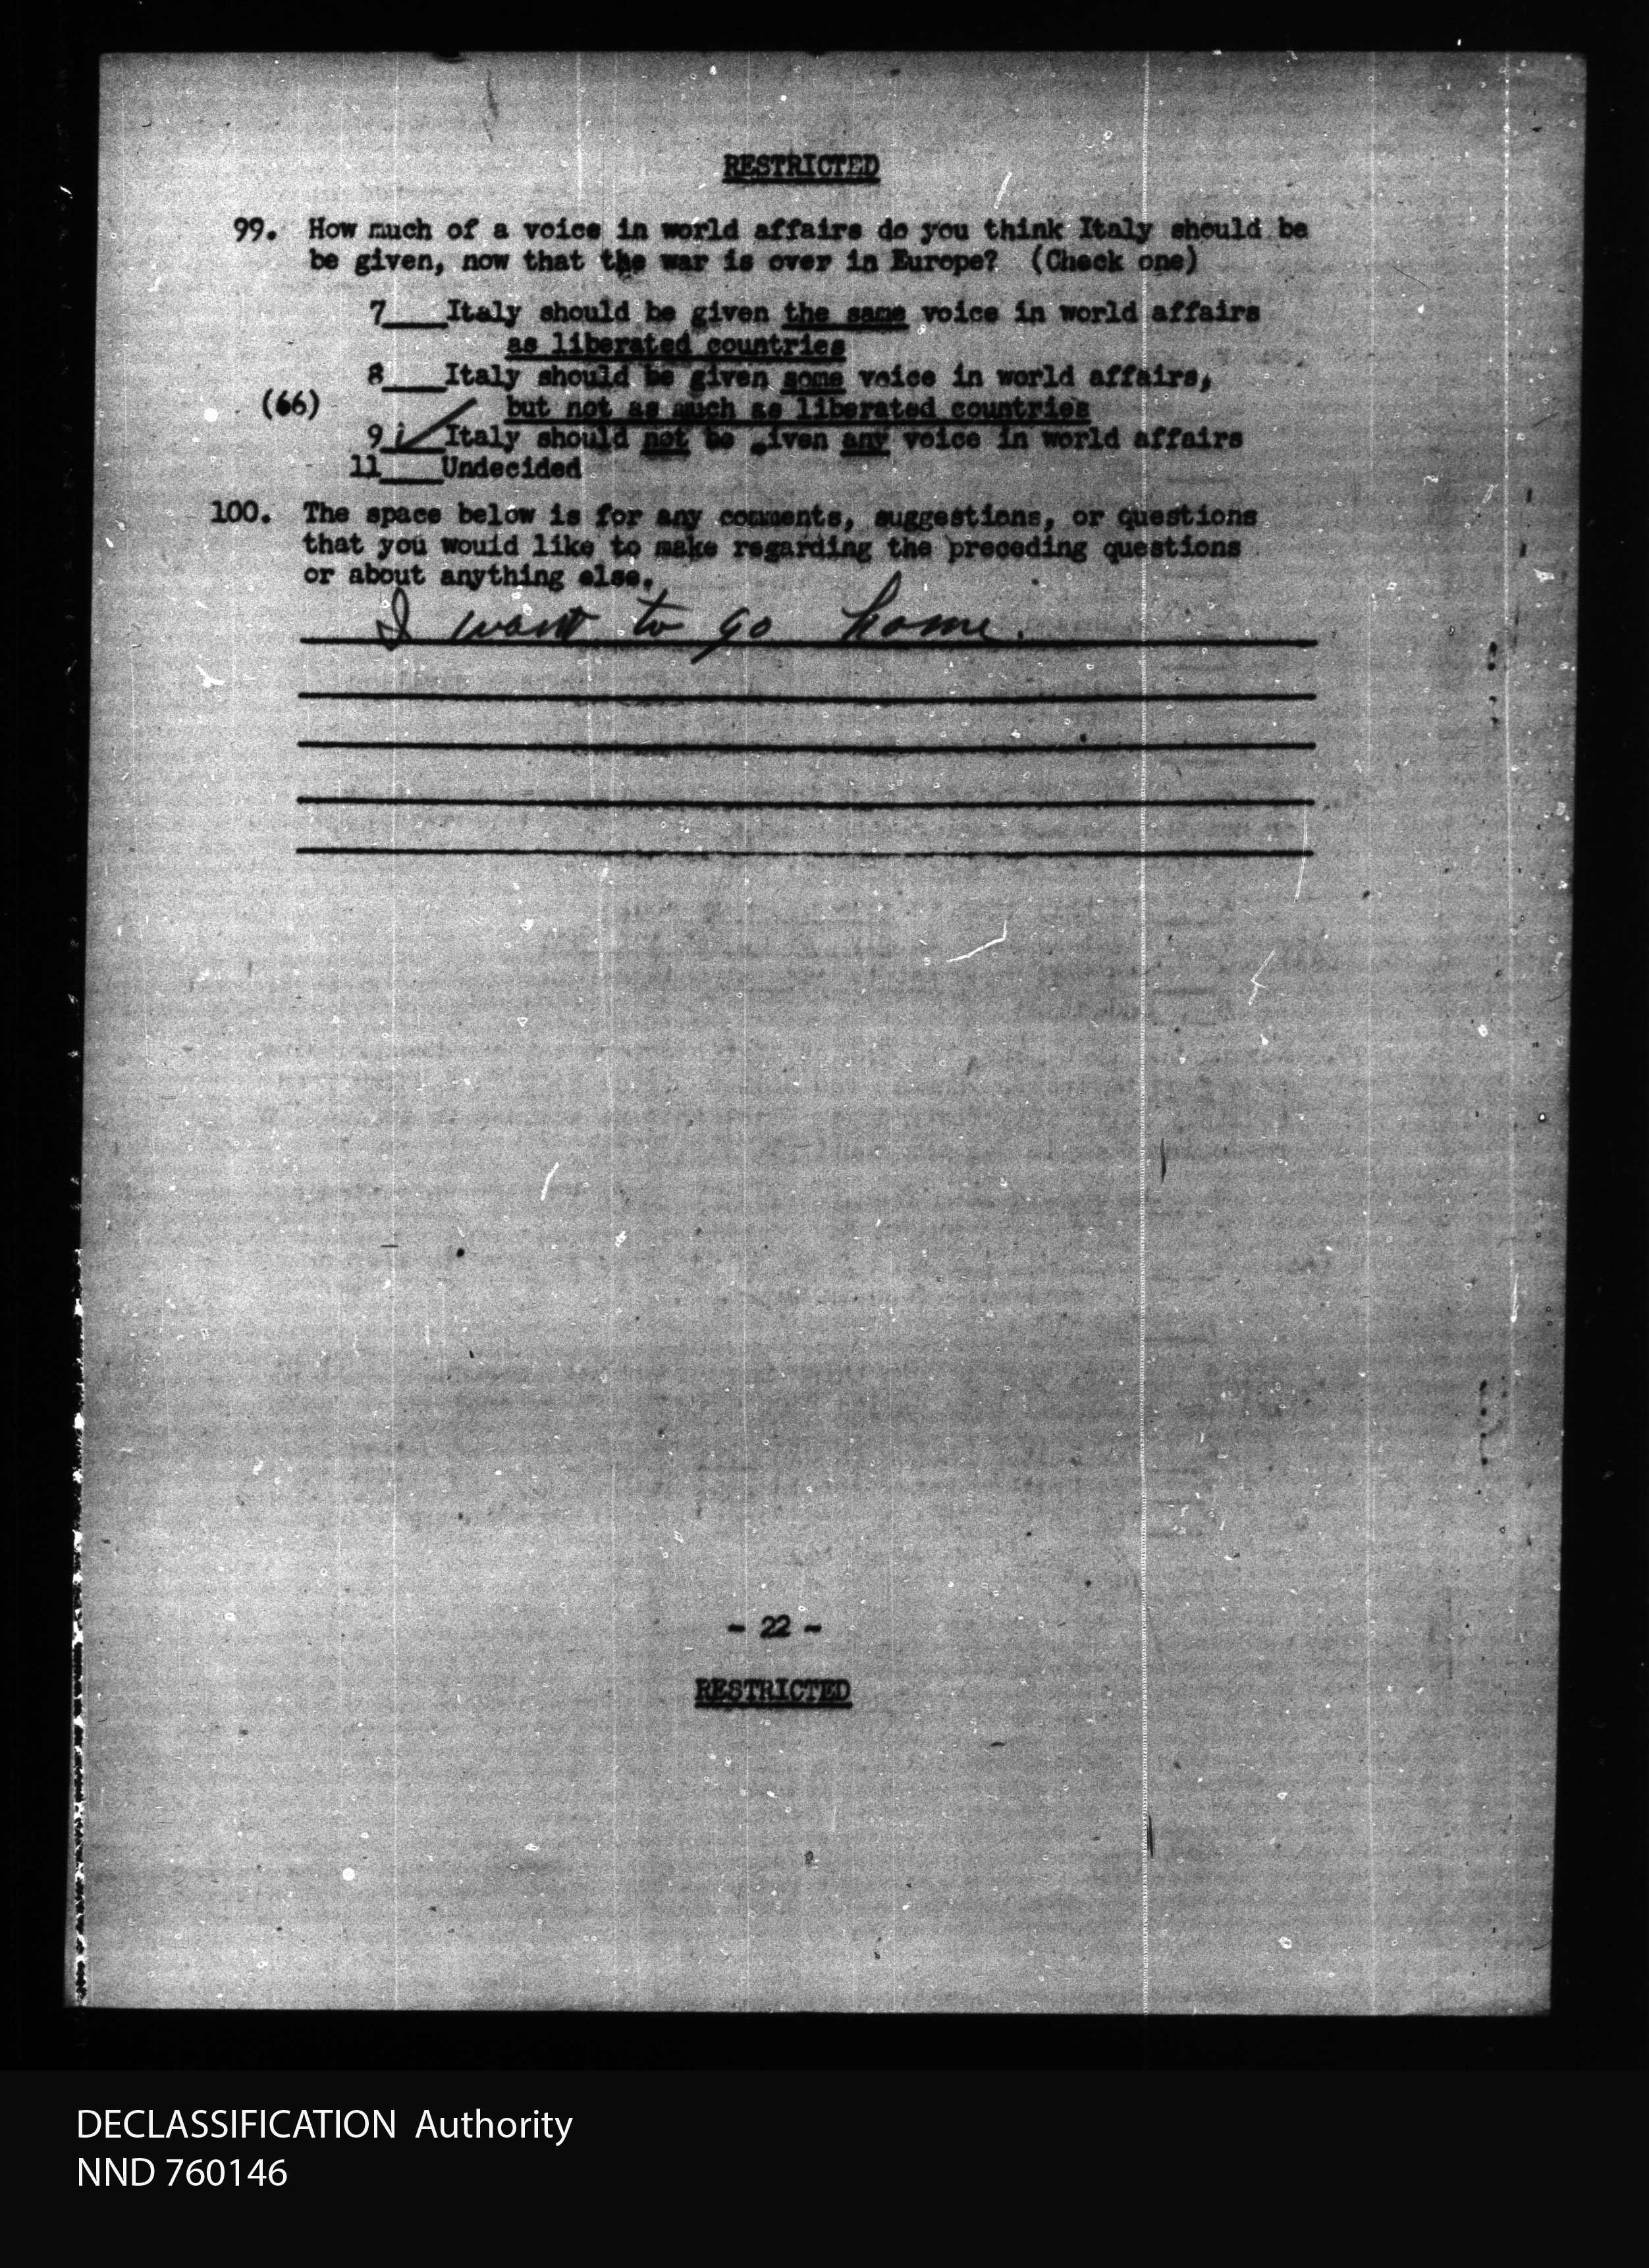 RESTRICTED
99. How much of a voice in world affairs do you think Italy should be
be given, now that the war is over in Europe? (Check one)
7___Italy should be given the same voice in world affairs
as liberated countries
8___Italy should be given some voice in world affairs,
(66) but not as much as liberated countries
9 ✓ Italy should not be given any voice in world affairs
11___Undecided
100. The space below is for any comments, suggestions, or questions
that you would like to make regarding the preceding questions
or about anything else.
I want to go home.
- 22 -
RESTRICTED
DECLASSIFICATION Authority
NND 760146